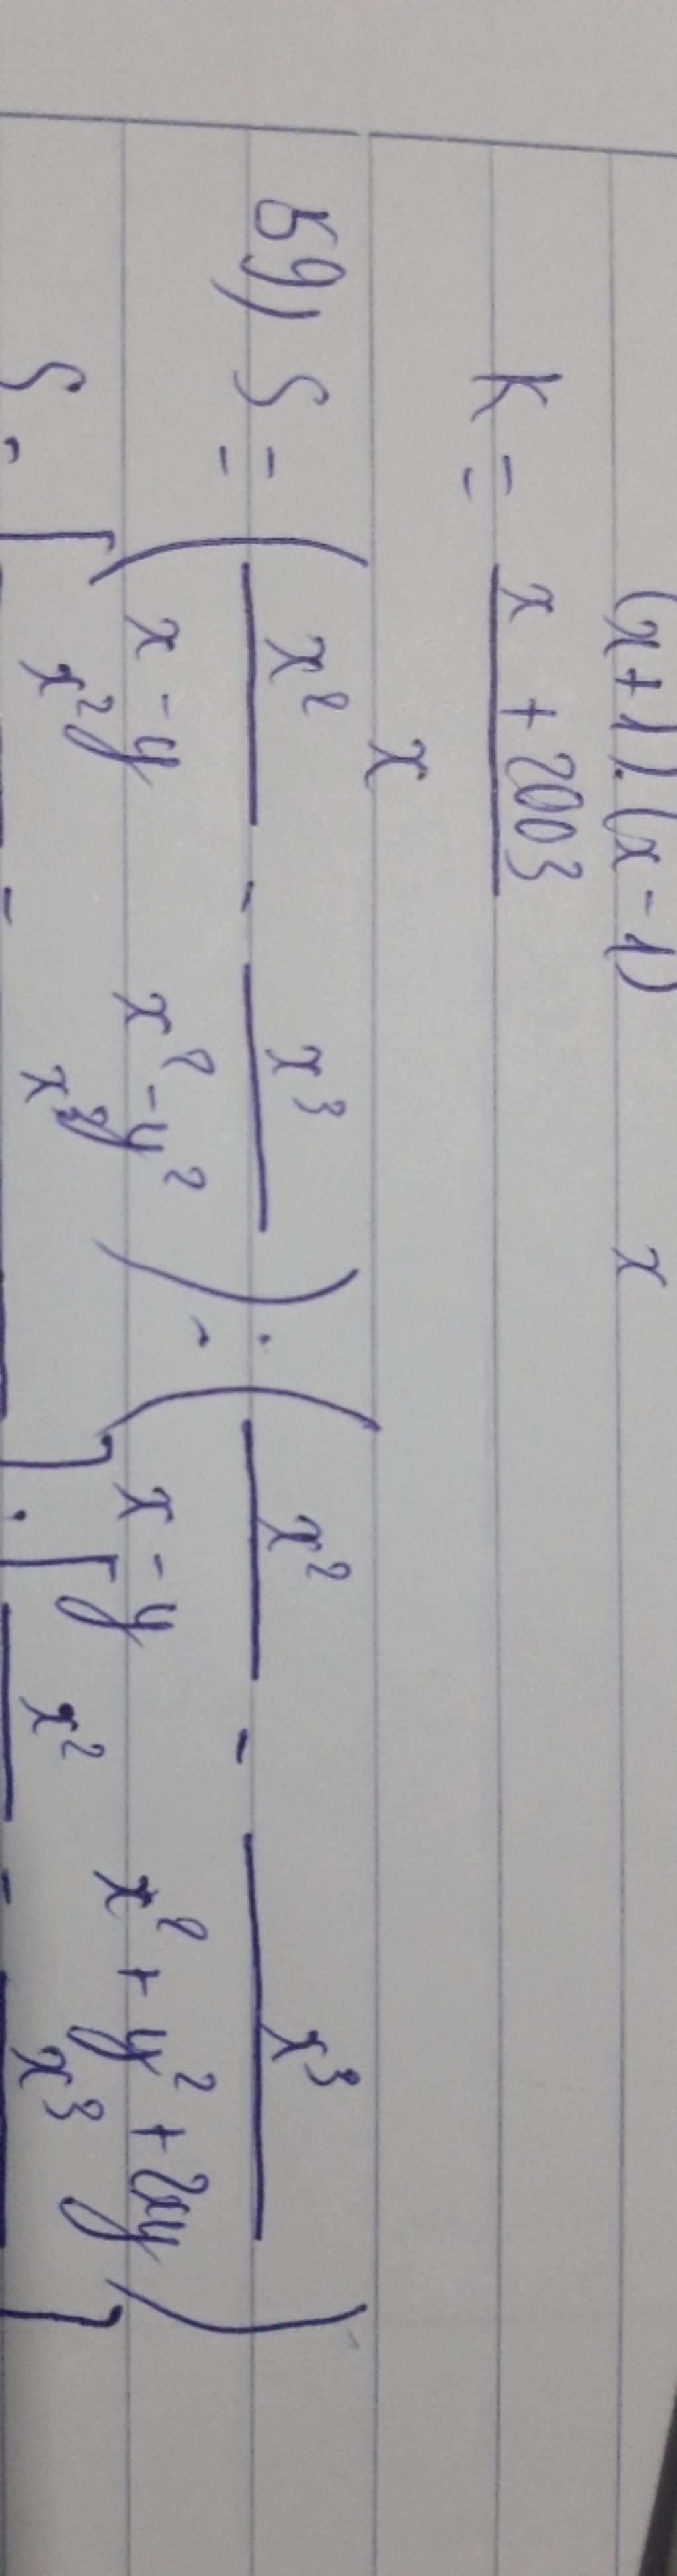 (x+1).(x-1) x
K = x + 2003
x
59) S = ( x² - x³ ) : ( x² - x³ )
x-y x²-y² x-y x²+y²+2xy
S = [ x²y - x³y ] : [ x² - x³ ]